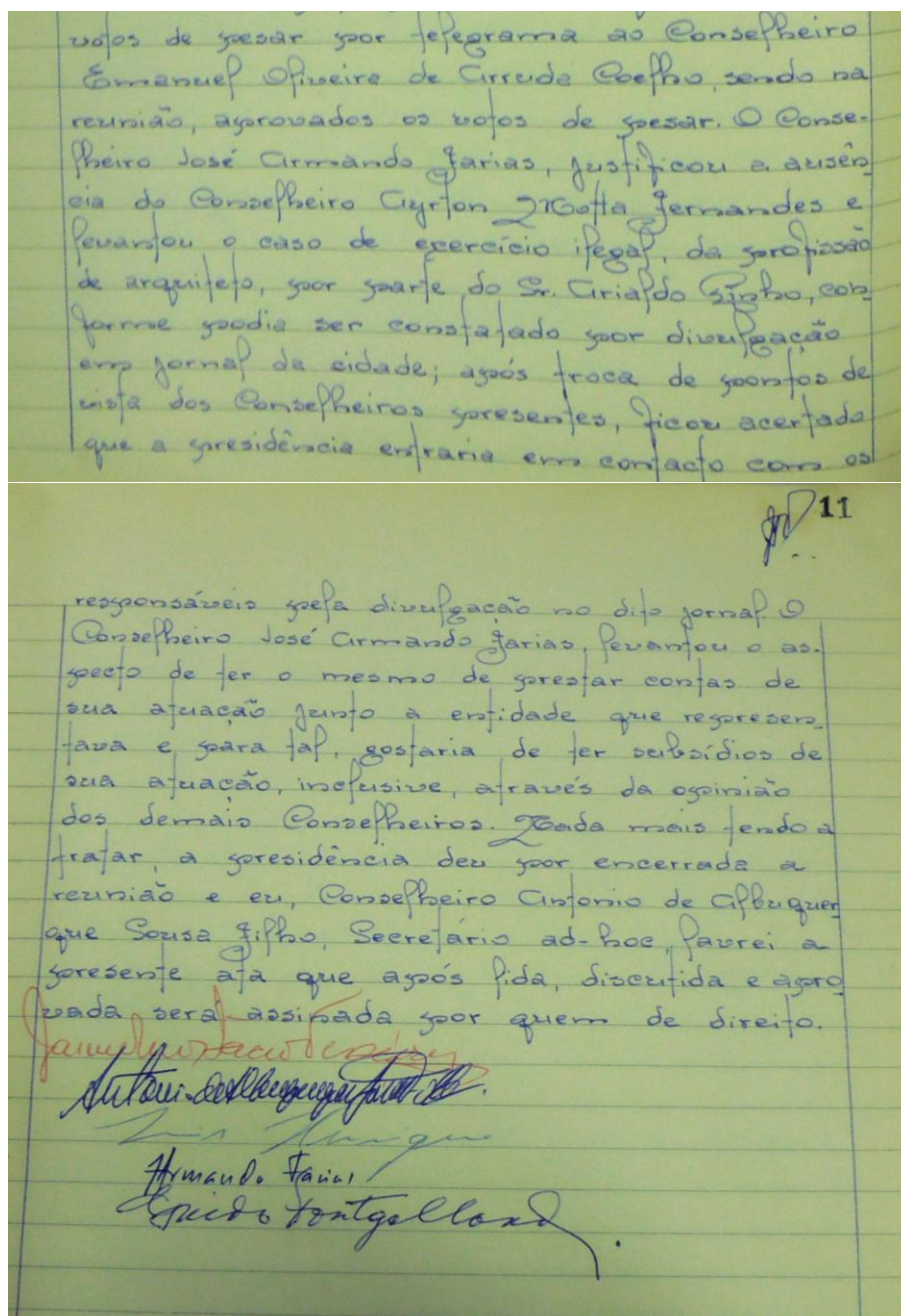 votos de pesar por telegrama ao Conselheiro
Emanuel Oliveira de Arruda Coelho, sendo na
reunião, aprovados os votos de pesar. O Conse-
lheiro José Armando Farias, justificou a ausên
cia do Conselheiro Ayrton Motta Fernandes e
levantou o caso de exercício ilegal, da profissão
de arquiteto, por parte do Sr. Arialdo Pinho, con
forme podia ser constatado por divulgação
em jornal da cidade; após troca de pontos de
vista dos Conselheiros presentes, ficou acertado
que a presidência entraria em contacto com os
11
responsáveis pela divulgação no dito jornal. O
Conselheiro José Armando Farias, levantou o as-
pecto de ter o mesmo de prestar contas de
sua atuação junto a entidade que represen_
tava e para tal, gostaria de ter subsídios de
sua atuação, inclusive, através da opinião
dos demais Conselheiros. Nada mais tendo a
tratar, a presidência deu por encerrada a
reunião e eu, Conselheiro Antonio de Albuquer
que Sousa Filho, Secretário ad-hoc, lavrei a
presente ata que após lida, discutida e apro
vada será assinada por quem de direito.
Antonio de Albuquerque Sousa Filho
Luis Henrique
Armando Farias